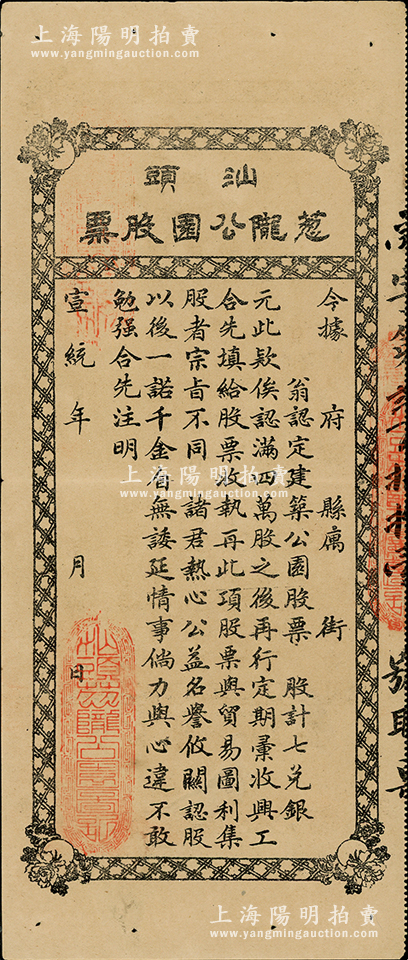 上海陽明拍賣
www.yangmingauction.com
汕頭
蔥隴公園股票
今據　府　縣寓　街
翁認定建築公園股票　股計七兌銀
元此欵俟認滿四萬股之後再行定期彙收興工
合先填給股票收執再此項股票與貿易圖利集
股者宗旨不同　諸君熱心公益名譽攸關認股
以後一諾千金眉無諉延情事倘力與心違不敢
勉强合先注明
宣統　年　月　日
上海陽明拍賣
www.yangmingauction.com
上海陽明拍賣
www.yangmingauction.com